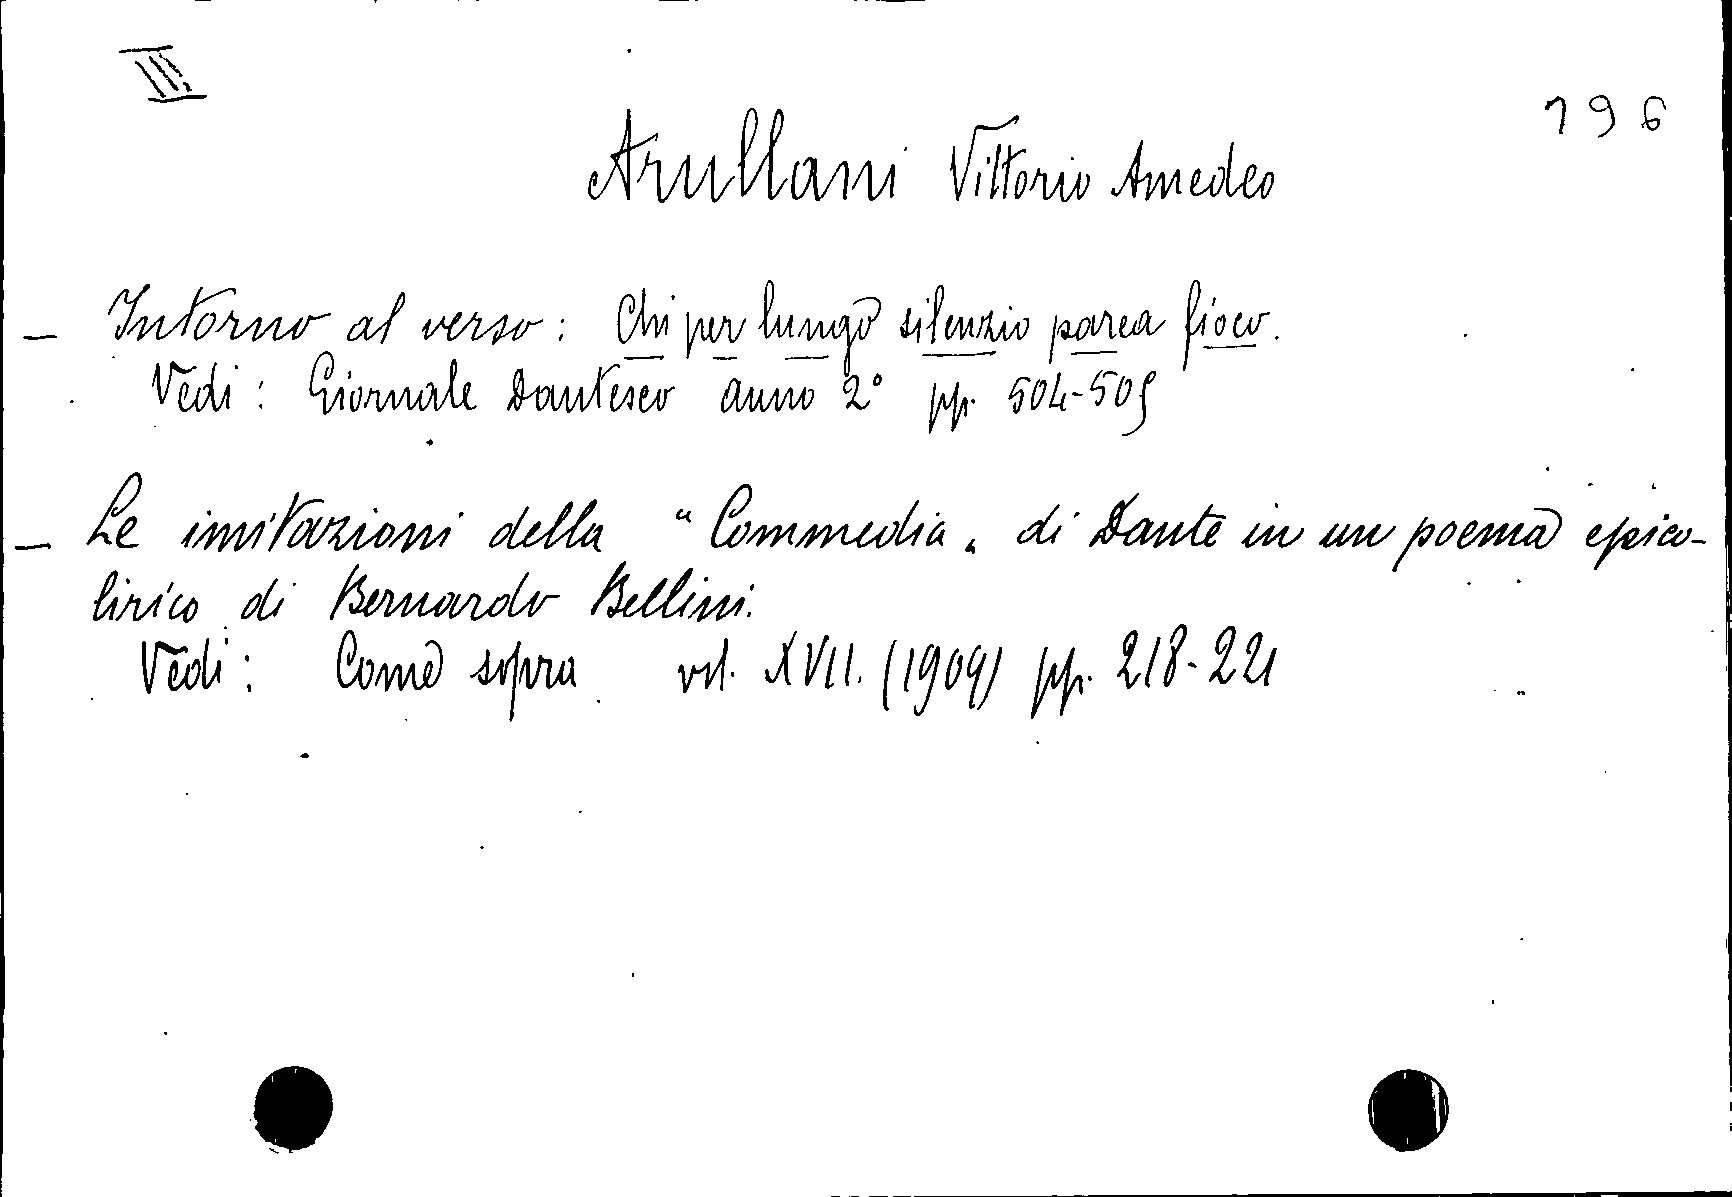 III
196
Arullani Vittorio Amedeo
— Intorno al verso: Chi per lungo silenzio parea fioco.
Vedi: Giornale Dantesco anno 2° pp. 504-505
— Le imitazioni della "Commedia" di Dante in un poema epico-
lirico di Bernardo Bellini.
Vedi: Come sopra vol. XVII. (1909) pp. 218-221